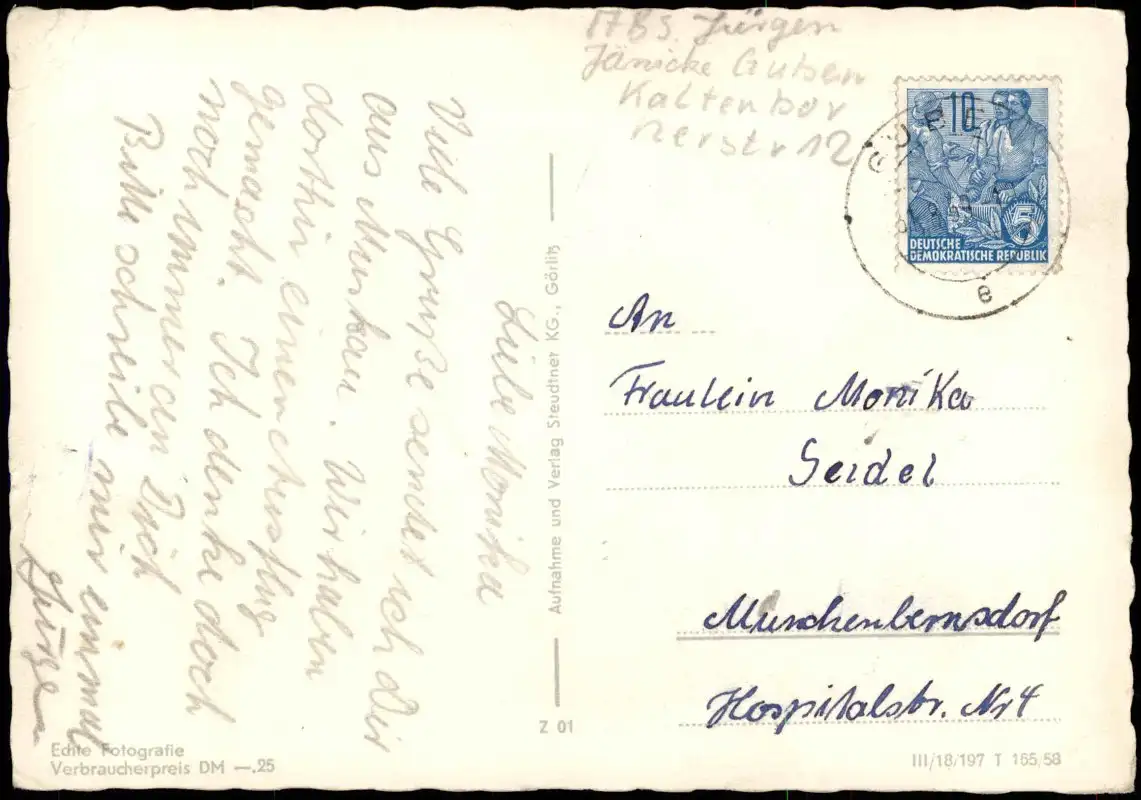 Jürgen
Jänicke Guben
Kaltenbor
nerstr 12
GUBEN
10
5
DEUTSCHE
DEMOKRATISCHE REPUBLIK
e
Liebe Monika
Viele Grüße sendet ich dir
aus Muskau. Wir haben
dorthin einen Ausflug
gemacht. Ich denke doch
noch immer an Dich
Bitte schreibe mir einmal
Jürgen
Aufnahme und Verlag Steudtner KG., Görlitz
An
Fraulein Monika
Seidel
Munchenbernsdorf
Hospitalstr. Nr 4
Z 01
Echte Fotografie
Verbraucherpreis DM —.25
III/18/197 T 165/58